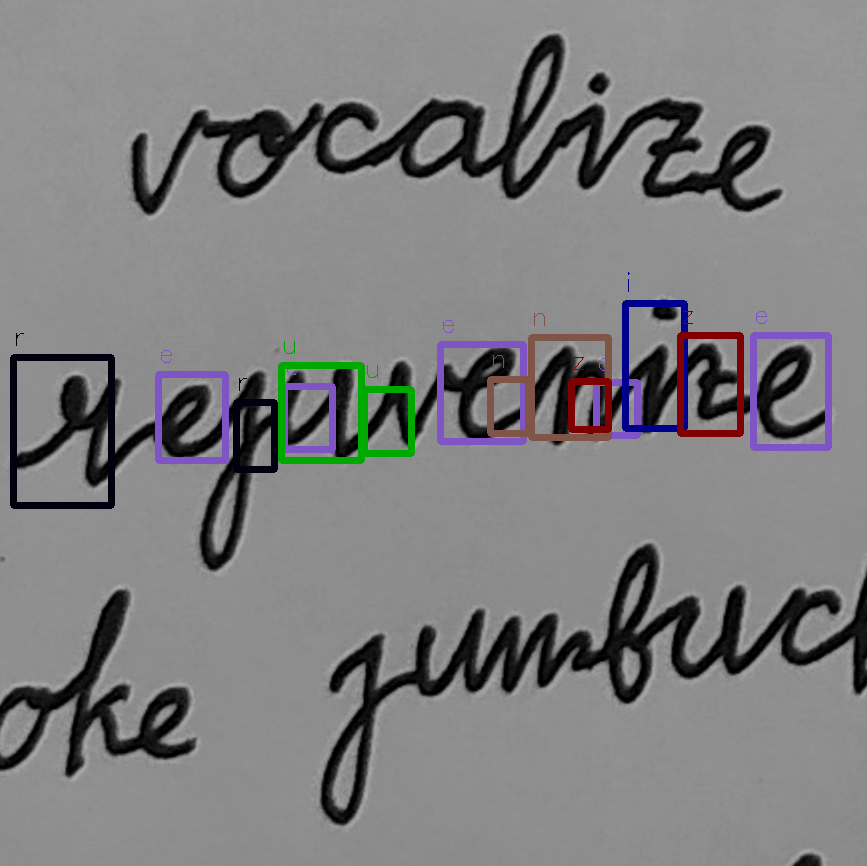 vocalize
r e r u u e n n z e i z e
rejuvenize
oke jumbuc